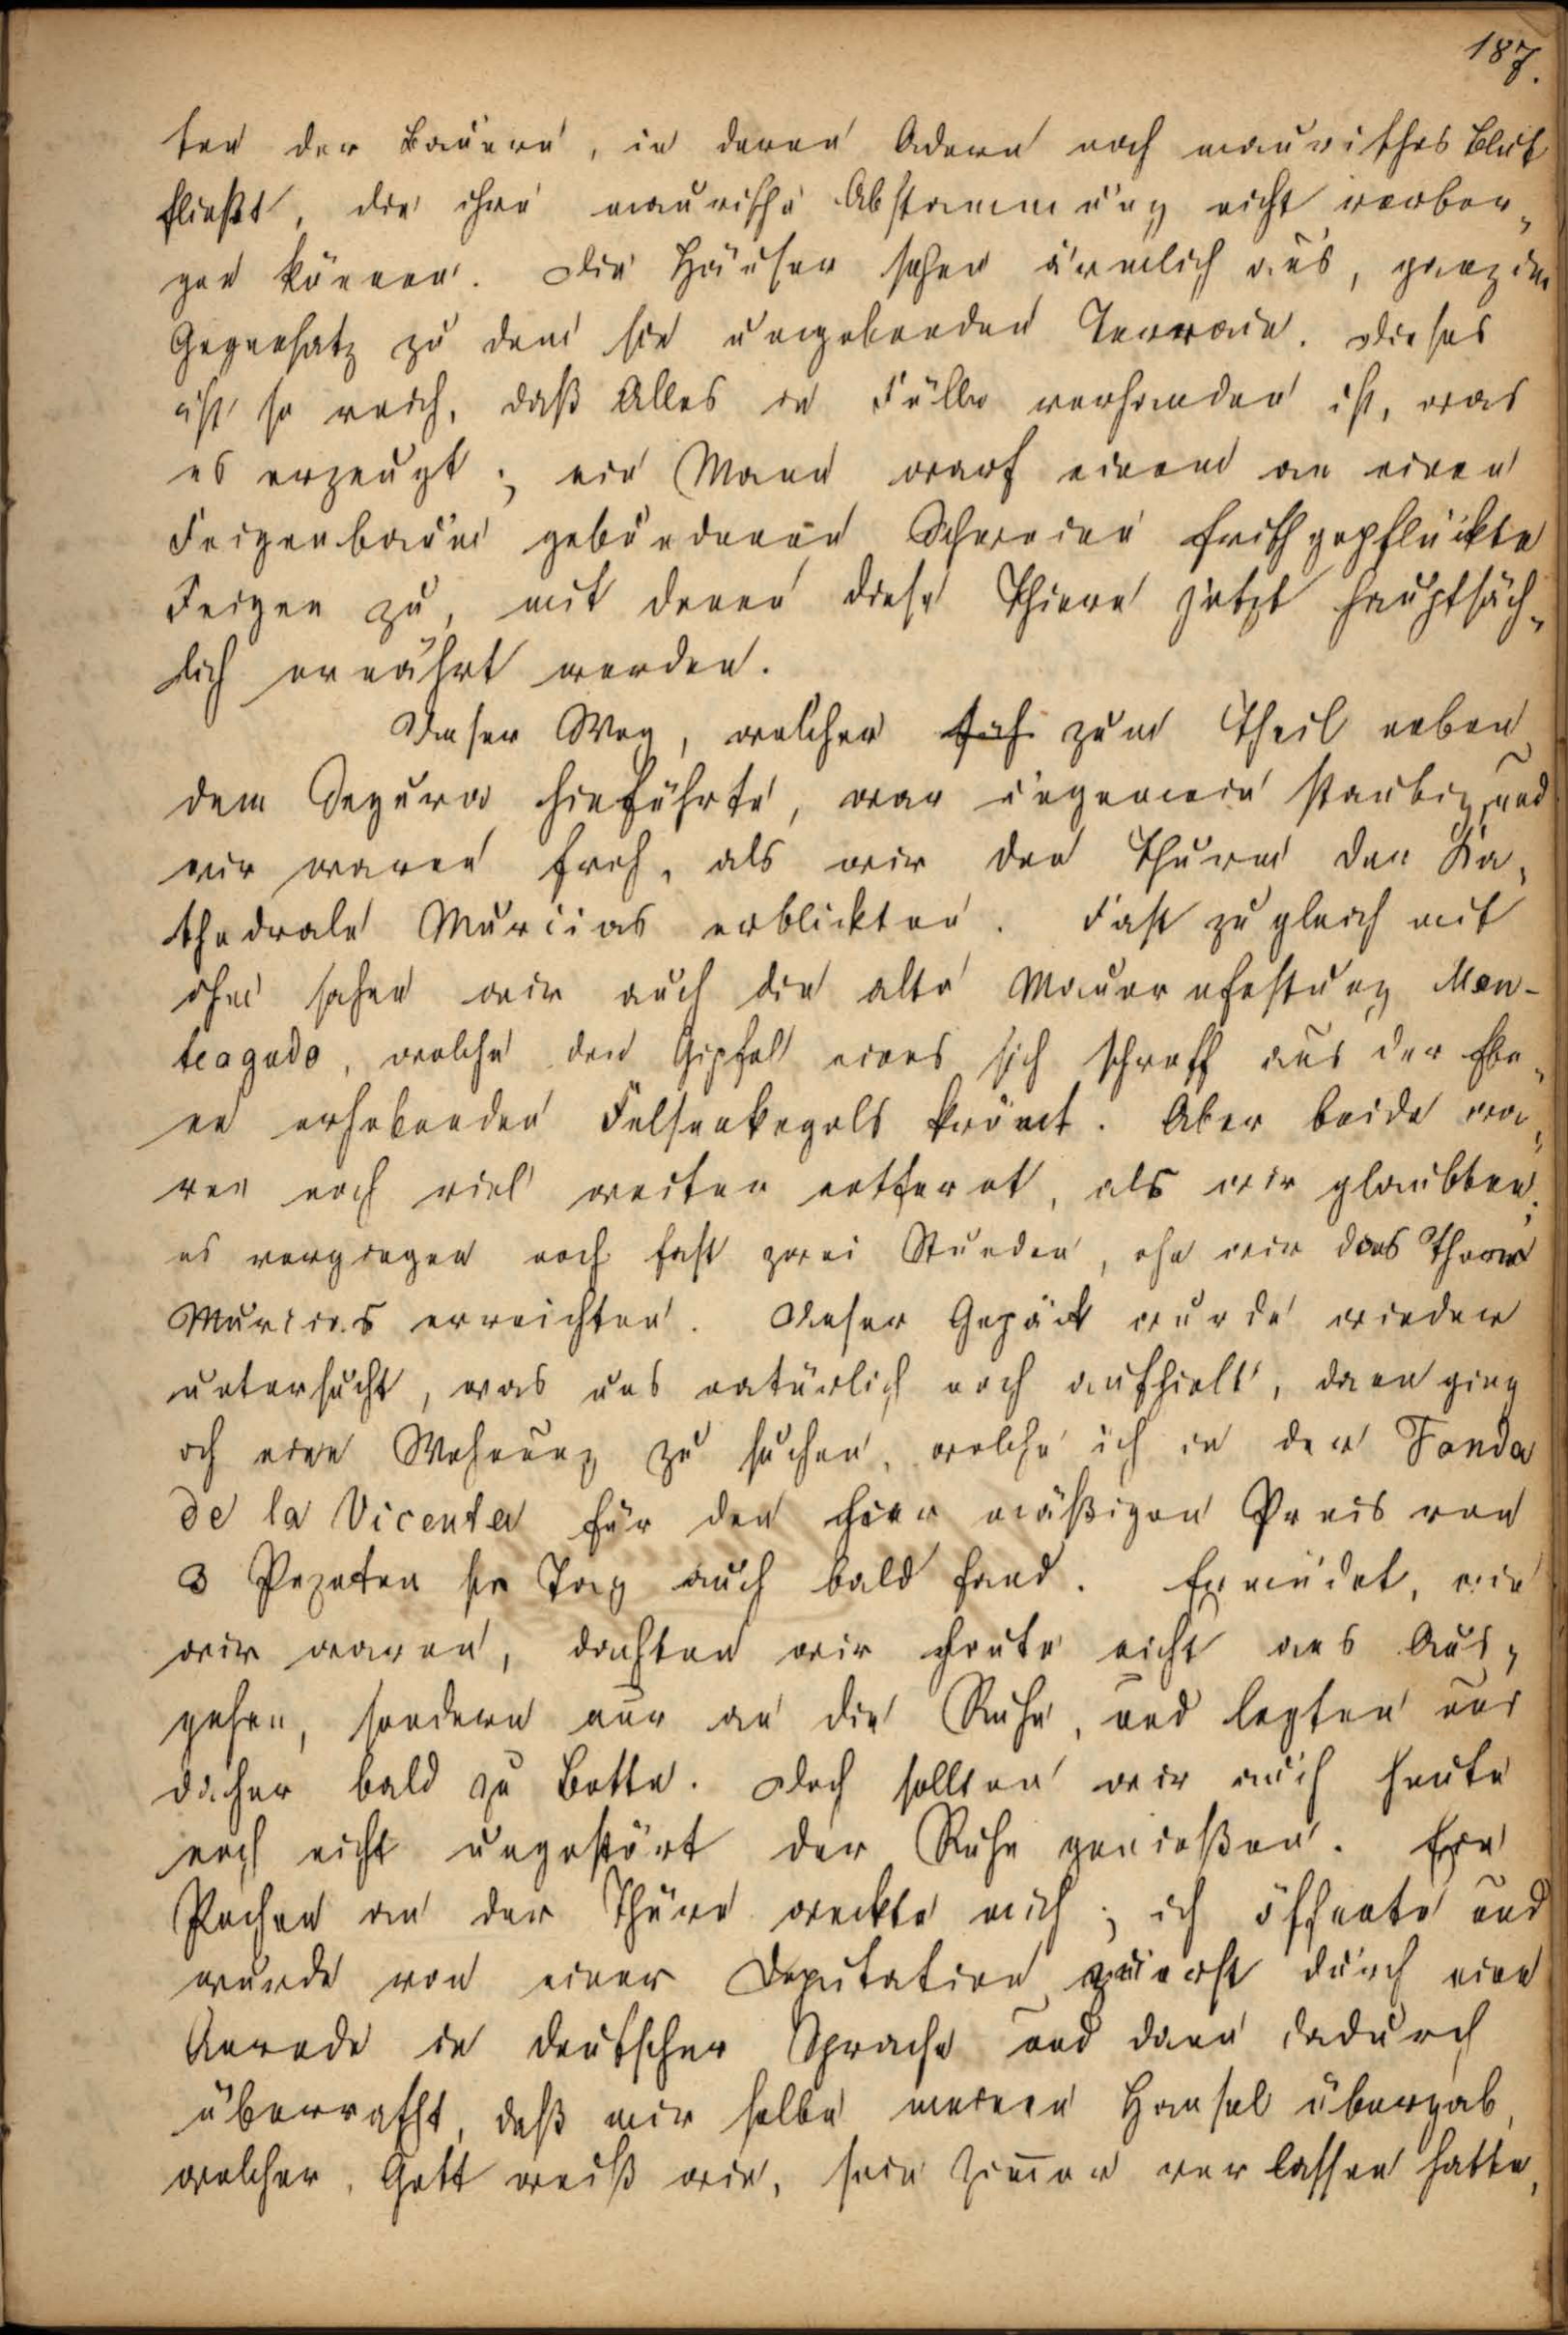 187.
ten der Bauern, in deren Adern noch maurisches Blut
fließt, die ihre maurische Abstammung nicht verber„
gen können. Die Häuser sehen ärmlich aus, ganz im
Gegensatz zu dem sie umgebenden Terrain. Dieses
ist so reich, daß Alles in Fülle vorhanden ist, was
es erzeugt; ein Mann warf einem an einen
Feigenbaum gebundenen Schweine frischgepflückte
Feigen zu, mit denen diese Thiere jetzt hauptsäch„
lich ernährt werden.
Unser Weg, welcher sich zum Theil neben
dem Segura hinführte, war ungemein staubig, und
wir waren froh, als wir den Thurm der Ka„
thedrale Murcias erblickten. Fast zugleich mit
ihm sahen wir auch die alte Maurenfestung Mon-
teagudo, welche den Gipfel eines sich schroff aus der Ebe„
ne erhebenden Felsenkegels krönt. Aber beide wa„
ren noch viel weiter entfernt, als wir glaubten;
es vergingen noch fast zwei Stunden, ehe wir das Thor
Murcias erreichten. Unser Gepäck wurde wieder
untersucht, was uns natürlich noch aufhielt, dann ging
ich eine Wohnung zu suchen, welche ich in der Fonda
de la Vicenta für den hier mäßigen Preis von
3 Pezeten pr Tag auch bald fand. Ermüdet, wie
wir waren, dachten wir heute nicht ans Aus„
gehen, sondern nur an die Ruhe, und legten uns
daher bald zu Bette. Doch sollten wir auch heute
noch nicht ungestört der Ruhe genießen. Ein
Pochen an der Thüre weckte mich; ich öffnete und
wurde von einer Deputation zuerst durch eine
Anrede in deutscher Sprache und dann dadurch
überrascht, daß mir selbe meinen Hansel übergab,
welcher, Gott weiß wie, sein Zimmer verlassen hatte,